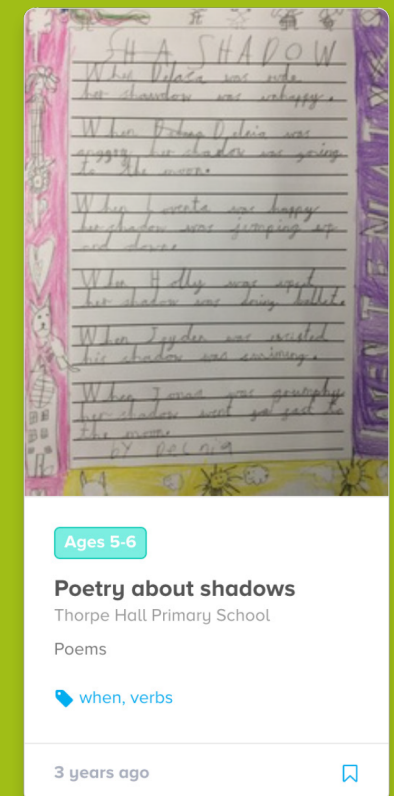 SHADOW
When was rude
her shawdow was unhappy.
When was
anggry her shadow was going
to the moon.
When was happy
her shadow was jumping up
and down.
When Holly was upset
her shadow was doing ballet.
When Jayden was
his shadow was
When Jonas was grumphy
her shadow went to
the moon.
by
Ages 5-6
Poetry about shadows
Thorpe Hall Primary School
Poems
when, verbs
3 years ago